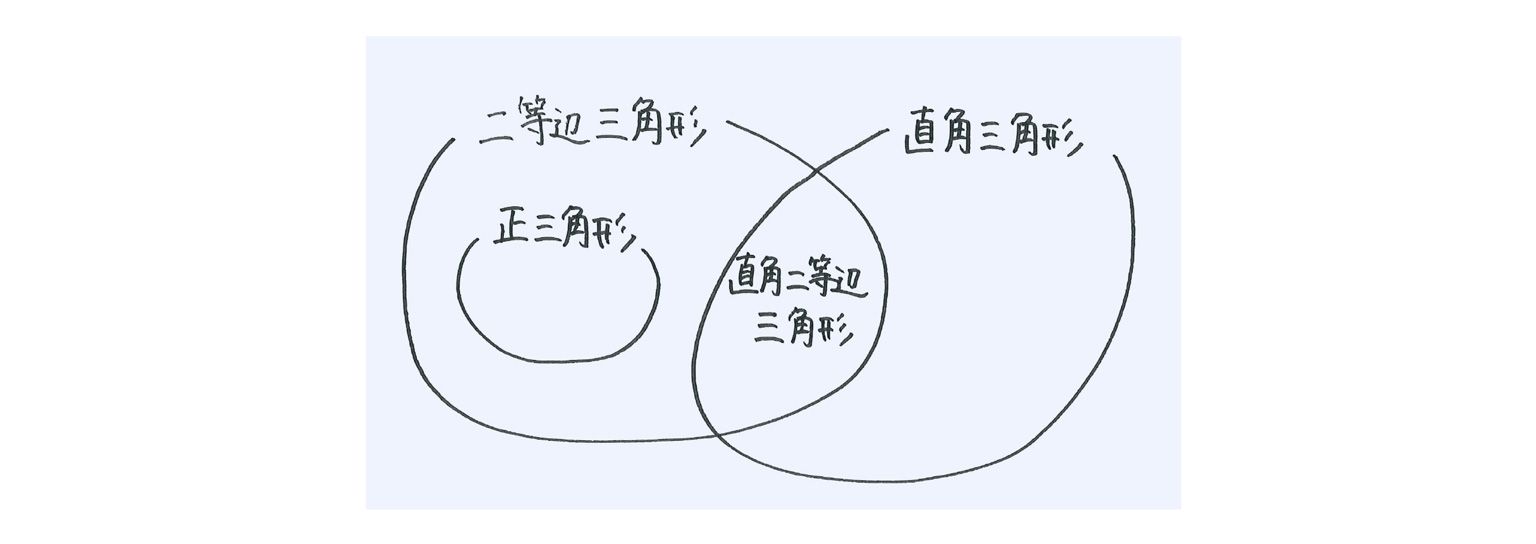 二等边三角形
直角三角形
正三角形
直角二等边
三角形